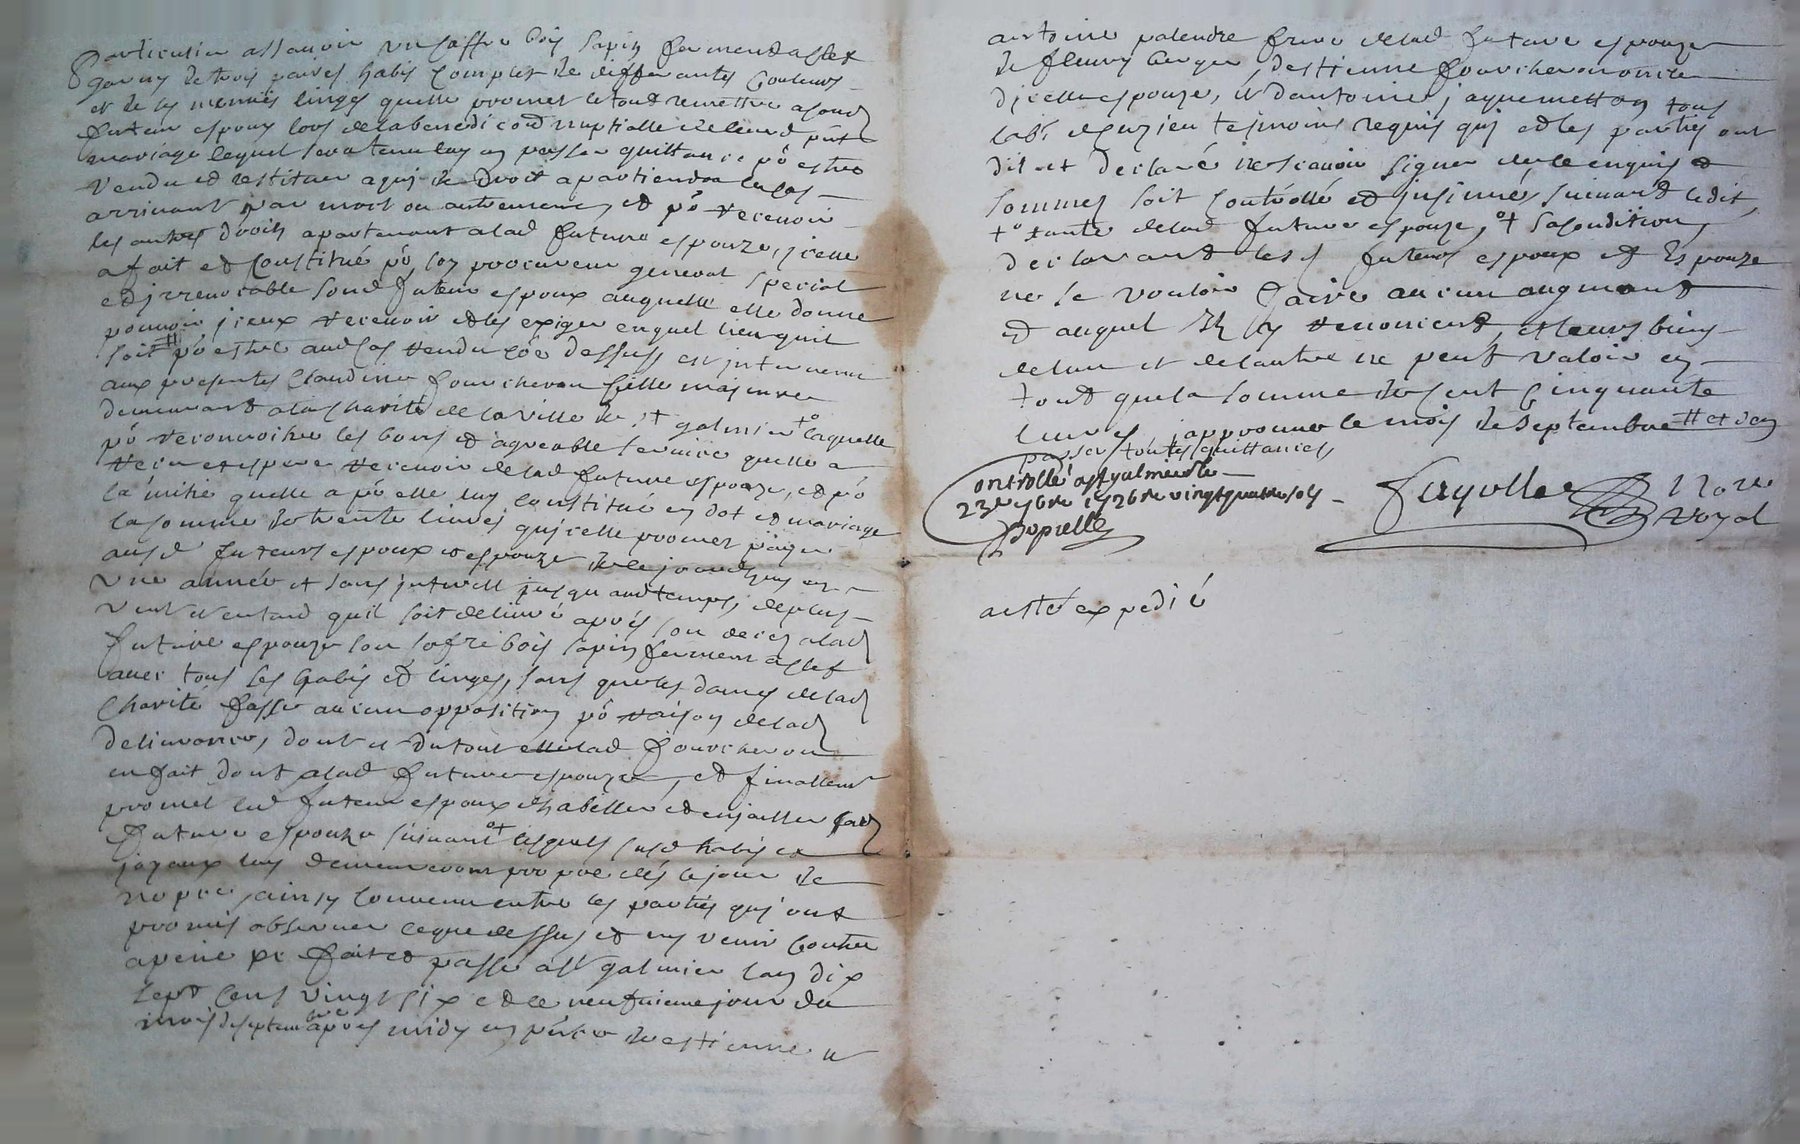 particulier assavoir un saffre bois sapin fermend a clef
garny de trois paires habis complet de differantes couleurs
et de ses menües linges quelle promet le tout remettre a sond
futeur espoux lors de la benediction nuptialle de leurd pnt
mariage lequel sera tenu luy en passer quittance po estre
rendu et restituer a qui de droit apartiendra le cas
arrivant par mort ou autrement, et po recevoir
les autres droits apartenant alad future espouze, icelle
a fait et constitué po son procureur general special
et irrevocable sond futeur espoux auquelle elle donne
pouvoir iceux recevoir et les exiger en quel lieu quil
soit # po estre aud cas rendu coe dessus, est intervenue
aux presentes Claudine fourcheron fille majeure
demeurant a la charité de la ville de st galmier laquelle
po reconnoitre les bons et agreable service quelle a
receu et espere recevoir delad future espouze, et po
lamitié quelle a po elle luy constitué en dot et mariage
la somme de trente livres quicelle promet payer
ausd futeurs espoux et espouze de ce jourdhuy en
une année et sans interest jusqu aud temps, de plus
veut et entand quil soit delivré apres son deces alad
future espouze son safre bois sapin fermen a clef
avec tous ses habis et linges, sans que les dames delad
charité fasse aucun opposition po raison delad
delivrance, dont et du tout ellelad fourcheron
en fait dont alad future espouze, et finallemt
promet led futeur espoux dhabiller et enjailler sad
future espouze suivant lesquels susd habis et
joyaux luy demeureront propre dés le jour de
nopce, ainsy convenu entre les parties qui ont
promis observer ce que dessus et ny venir contre
a peine pe fait et passe a st galmier lan dix
sept cens vingt six et ce neufvieme jour du
mois de septembre apres midy en pnce de estienne et
antoine palendre frere delad future espouze
de fleury berger, destienne fourcheron oncle
dicelle espouze, et dantoine jaquemetton tous
labs de tesmoins requis qui et les parties ont
dit et declaré ne scavoir signer de ce enquis et
sommes soit controllé et insinué suivant ledit,
tante delad future espouze, sa condition,
declarant lesd futeurs espoux et Espouze
ne se vouloir faire aucun augment
et auquel ils y renoncent, et leurs biens
de lun et de lautre ne peut valoir en
tout que la somme de cent cinquante
livres, approuver le mois de septembre # et den
passer toutes quittances,
Controllé a st galmier le
23e 7bre 1726 re vingt quatre sols
Popielle
fayolle
No re
Royal
a esté expedié